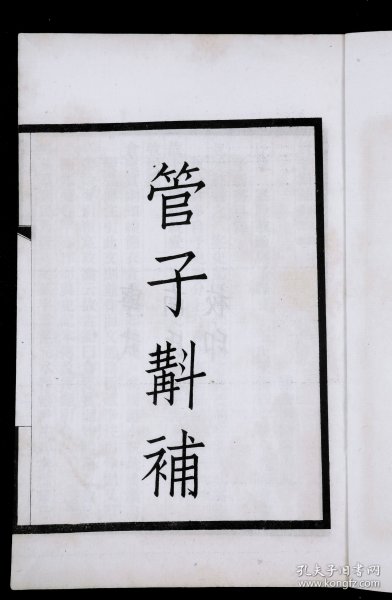 管子斠補
孔夫子旧书网
www.kongfz.com